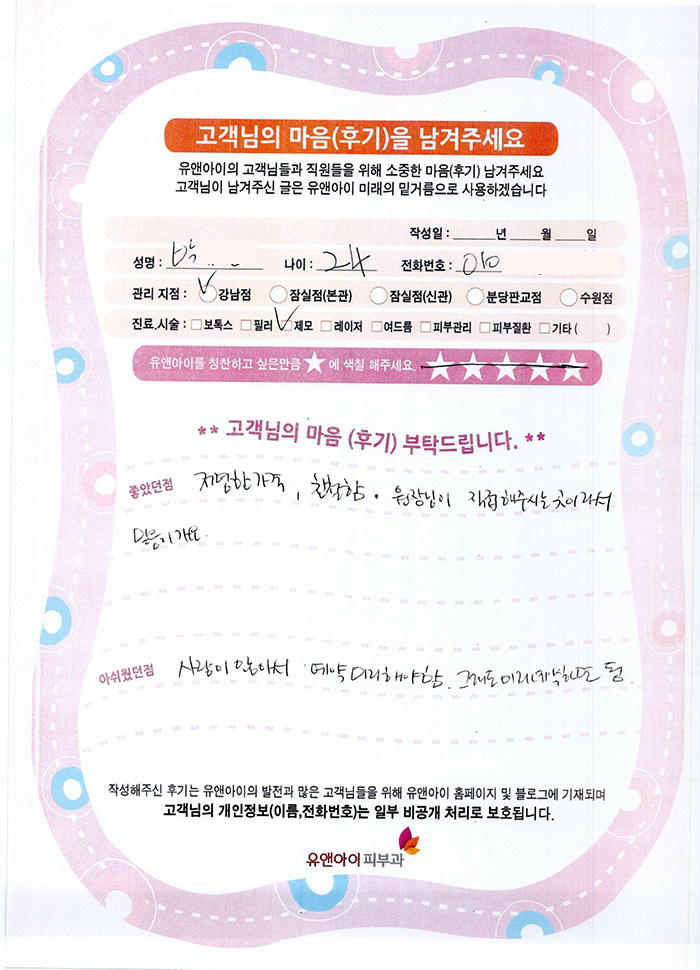 고객님의 마음(후기)을 남겨주세요
유앤아이의 고객님들과 직원들을 위해 소중한 마음(후기) 남겨주세요
고객님이 남겨주신 글은 유앤아이 미래의 밑거름으로 사용하겠습니다
작성일 : ______년 _____월 _____일
성명 : 박 나이 : 24 전화번호 : 010
관리 지점 : 강남점 잠실점(본관) 잠실점(신관) 분당판교점 수원점
진료,시술 : 보톡스 필러 제모 레이저 여드름 피부관리 피부질환 기타 ( )
유앤아이를 칭찬하고 싶은만큼 ★ 에 색칠 해주세요. ★★★★★
** 고객님의 마음 (후기) 부탁드립니다. **
좋았던점 저렴한가격, 친절함. 원장님이 직접해주시는곳이라서
믿음이가요.
아쉬웠던점 사람이 많아서 예약미리해야함. 그래도미리예약하면 됨.
작성해주신 후기는 유앤아이의 발전과 많은 고객님들을 위해 유앤아이 홈페이지 및 블로그에 기재되며
고객님의 개인정보(이름,전화번호)는 일부 비공개 처리로 보호됩니다.
유앤아이 피부과